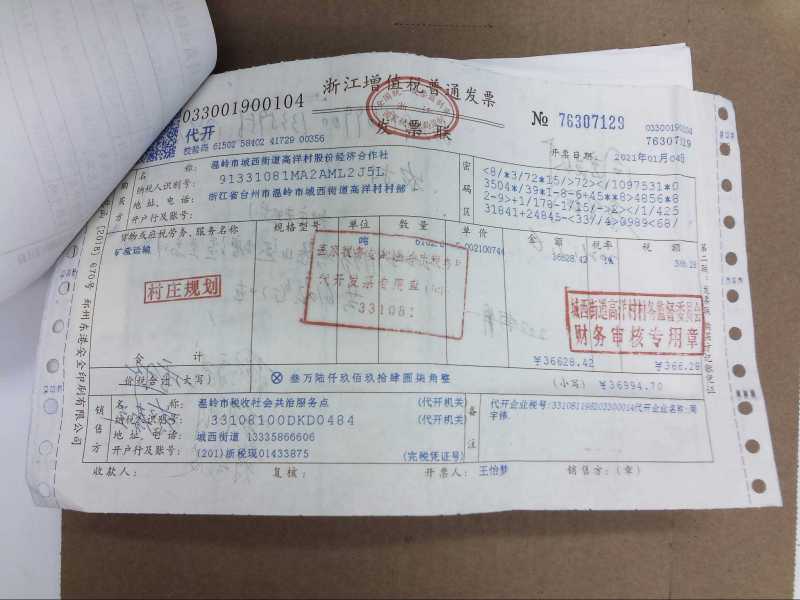 浙江增值税普通发票
发票联
033001900104
代开
校验码 61502 58402 41729 00356
№ 76307129
033001900104
76307129
开票日期: 2021年01月04日
购买方
名称: 温岭市城西街道高洋村股份经济合作社
纳税人识别号: 91331081MA2AML2J5L
地址、电话: 浙江省台州市温岭市城西街道高洋村村部
开户行及账号:
密码区
<8/*3/72*15/>72></1097531*0
3504*/39*1-8-6+45**8>4856*8
货物或应税劳务、服务名称 规格型号 单位 数量 单价 金额 税率 税额
矿渣运输 吨 36628.42 1% 366.28
村庄规划
代开发票专用章
331081
城西街道高洋村村务监督委员会
财务审核专用章
合计 ¥36628.42 ¥366.28
价税合计(大写) ⊗ 叁万陆仟玖佰玖拾肆圆柒角整 (小写) ¥36994.70
销售方
名称: 温岭市税收社会共治服务点 (代开机关)
纳税人识别号: 33108100DKD0484 (代开机关)
地址、电话: 城西街道 13335866606
开户行及账号: (201)浙税现01433875 (完税凭证号)
备注
代开企业税号:331081198203300014代开企业名称:周
收款人: 复核: 开票人: 王怡梦 销售方:(章)
第二联:发票联 购买方记账凭证